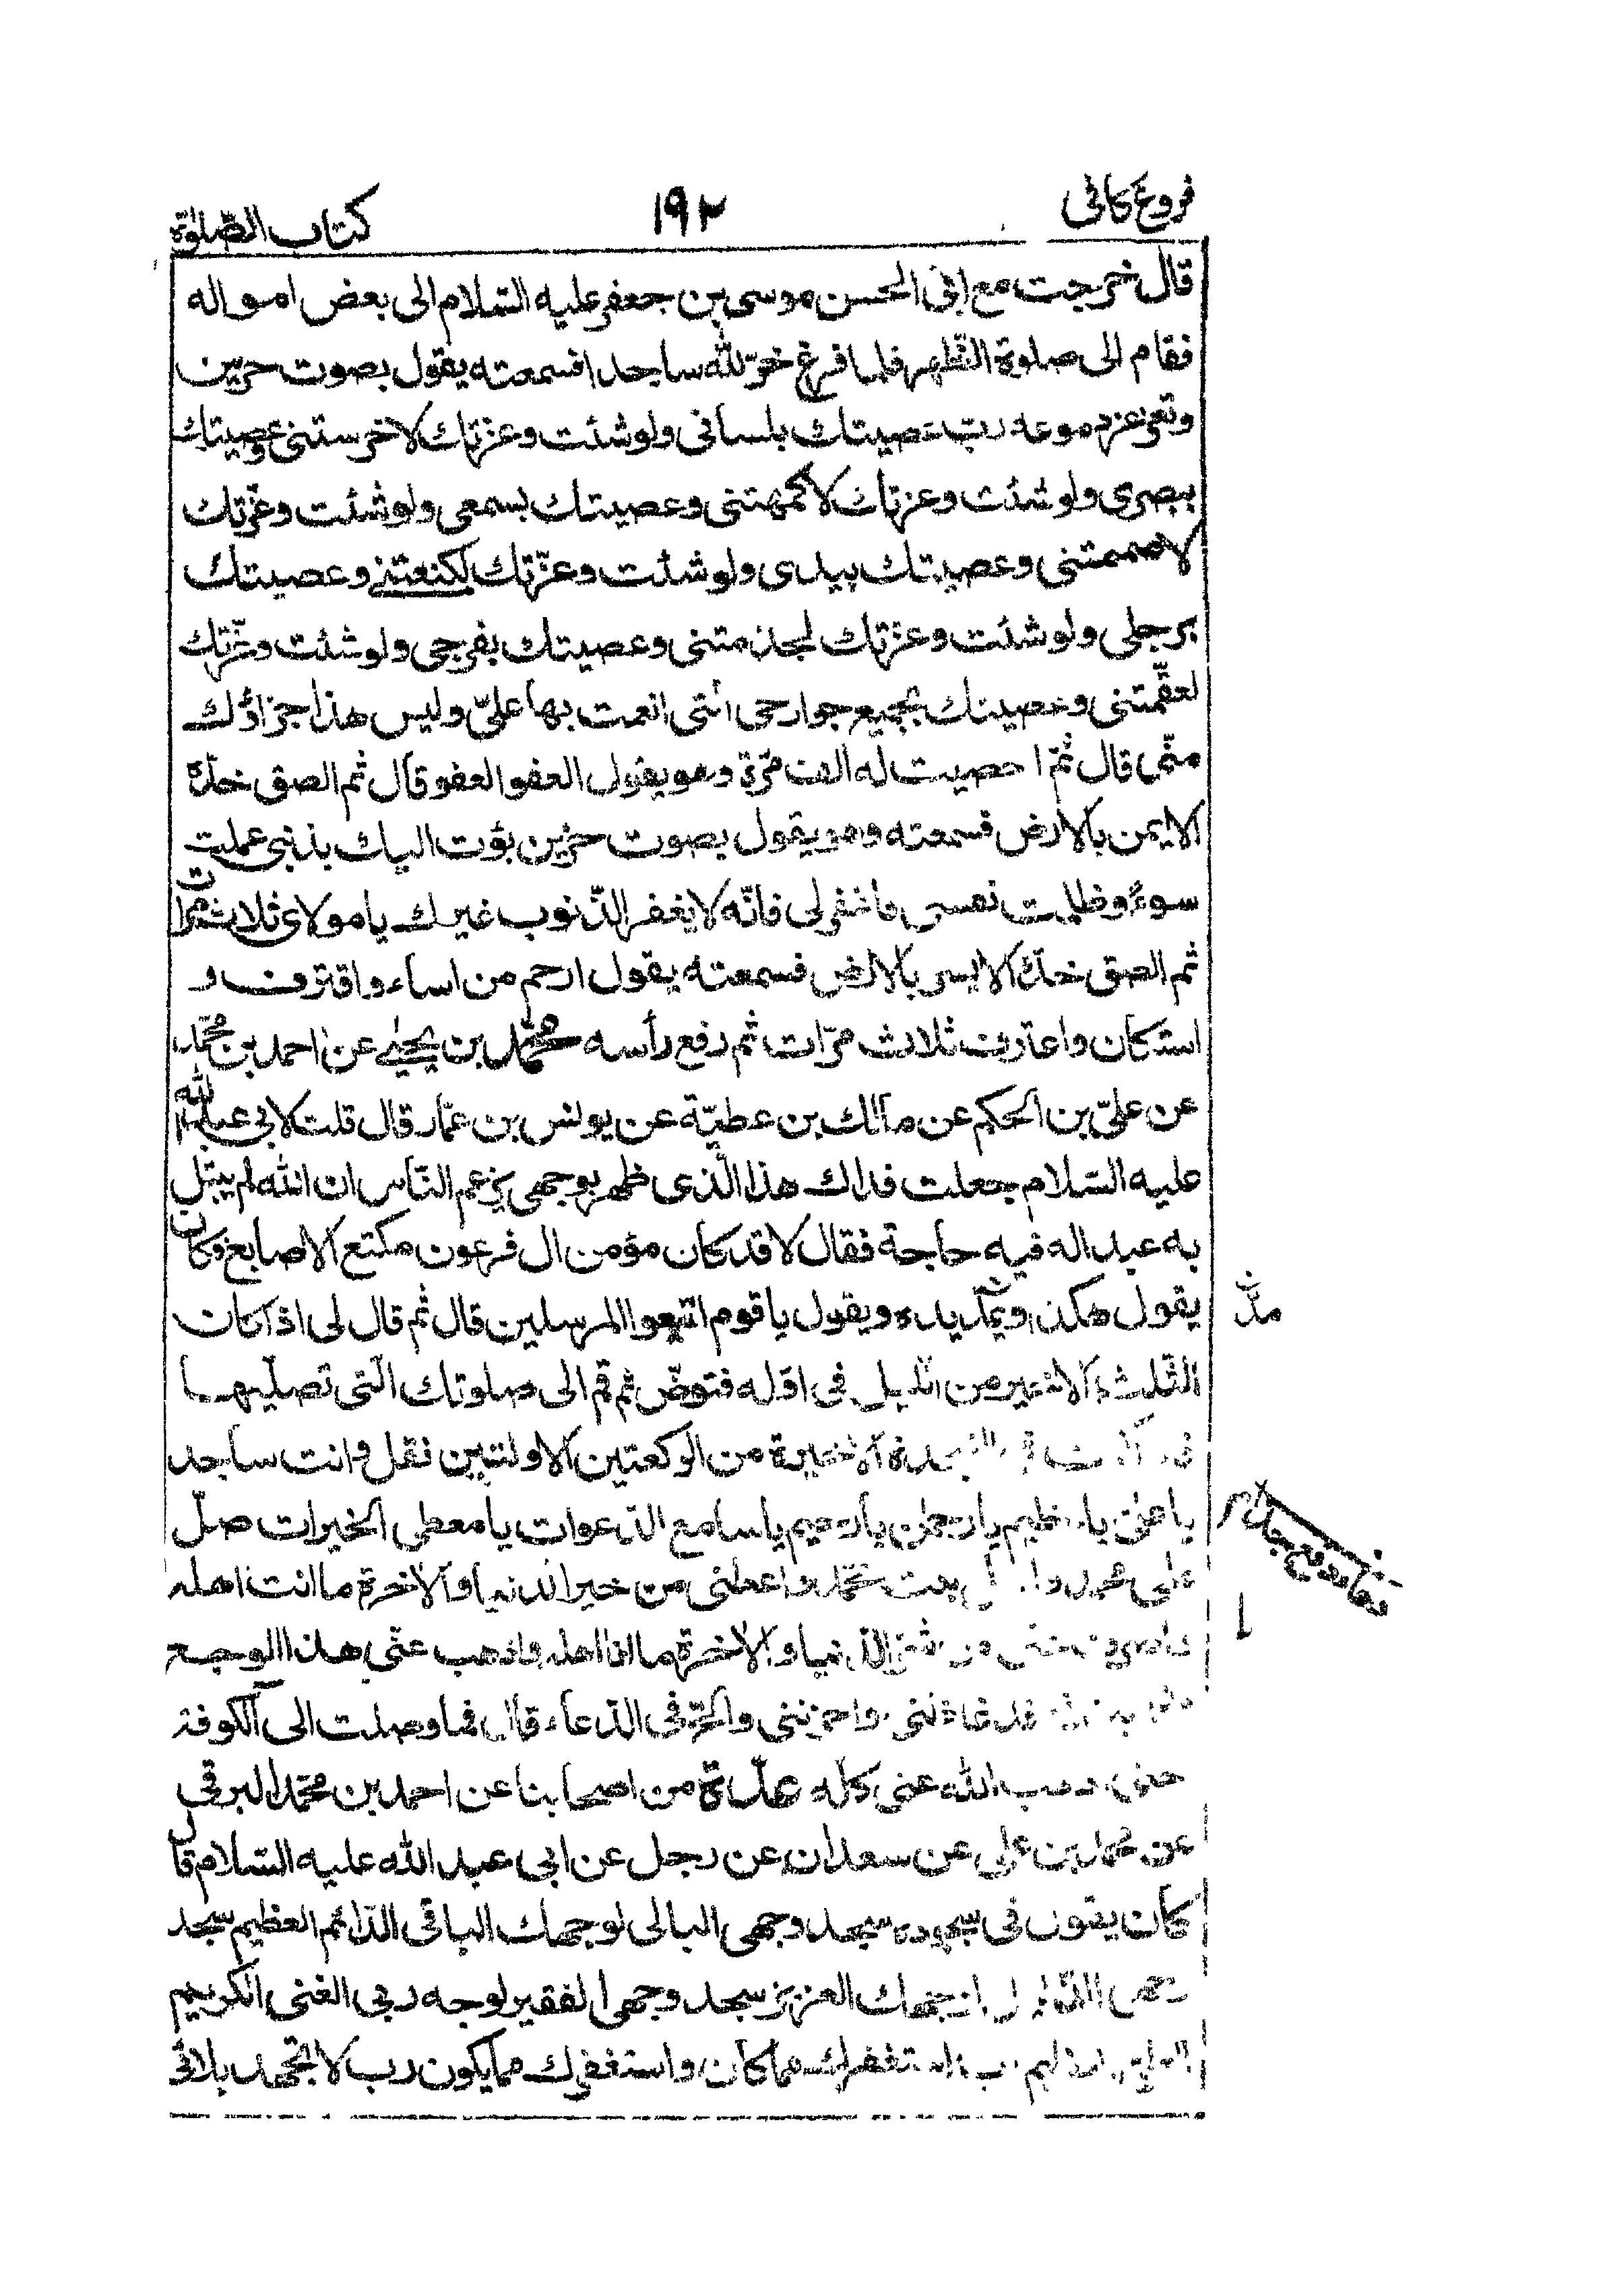 فروع كافى
١٩٢
كتاب الصّلوٰة
قال خرجت مع ابى الحسن موسى بن جعفر عليه السّلام الى بعض امواله
فقام الى صلوة الظّهر فلما فرغ خرّ لله ساجدا فسمعته يقول بصوت حزين
وتغرغر دموعه ربّ عصيتك بلسانى ولو شئت وعزّتك لاخرستنى وعصيتك
ببصرى ولو شئت وعزتك لاكمهتنى وعصيتك بسمعى ولو شئت وعزّتك
لاصممتنى وعصيتك بيدى ولو شئت وعزّتك لكنعتنى وعصيتك
برجلى ولو شئت وعزتك لجذمتنى وعصيتك بفرجى ولو شئت وعزّتك
لعقّمتنى وعصيتك بجميع جوارحى التى انعمت بها علىّ وليس هذا جزاؤك
منّى قال ثمّ احصيت له الف مرّة وهو يقول العفو العفو قال ثم الصق خدّه
الايمن بالارض فسمعته وهو يقول بصوت حزين بؤت اليك بذنبى عملت
سوءً وظلمت نفسى فاغفر لى فانّه لا يغفر الذّنوب غيرك يا مولاى ثلاث مرات
ثم الصق خدّه الايسر بالارض فسمعته يقول ارحم من اساء واقترف و
استكان واعترف ثلاث مرّات ثم رفع رأسه محمّد بن يحيى عن احمد بن محمّد
عن علىّ بن الحكم عن مالك بن عطيّة عن يونس بن عمّار قال قلت لابى عبد الله
عليه السّلام جعلت فداك هذا الّذى ظهر بوجهى يزعم النّاس ان الله لم يبتل
به عبدا له فيه حاجة فقال لا قد كان مؤمن ال فرعون مكتع الاصابع فكان
يقول هكذا ويمدّ يده ويقول يا قوم اتّبعوا المرسلين قال ثم قال لى اذا كان
الثّلث الاخير من اللّيل فى اوّله فتوضّ ثم قم الى صلوتك الّتى تصلّيها
السجدة الاخيرة من الركعتين الاولتين فقل وانت ساجد
يا علىّ يا عظيم يا رحمٰن يا رحيم يا سامع الدّعوات يا معطى الخيرات صلّ
على محمّد واهل بيت محمّد واعطنى من خير الدّنيا والاخرة ما انت اهله
واصرف عنّى من شرّ الدّنيا والاخرة ما انا اهله واذهب عنّى هذا الوجع
فانّه قد غاظنى واحزننى والحّ فى الدّعاء قال فما وصلت الى الكوفة
حتى ذهب الله عنى كلّه عدّة من اصحابنا عن احمد بن محمّد البرقى
عن محمّد بن على عن سعدان عن رجل عن ابى عبد الله عليه السّلام قال
كان يقول فى سجوده سجد وجهى البالى لوجهك الباقى الدّائم العظيم سجد
وجهى الذّليل لوجهك العزيز سجد وجهى الفقير لوجه ربّى الغنى الكريم
العلى العظيم رب استغفرك مما كان واستغفرك مما يكون رب لا تجهد بلائى